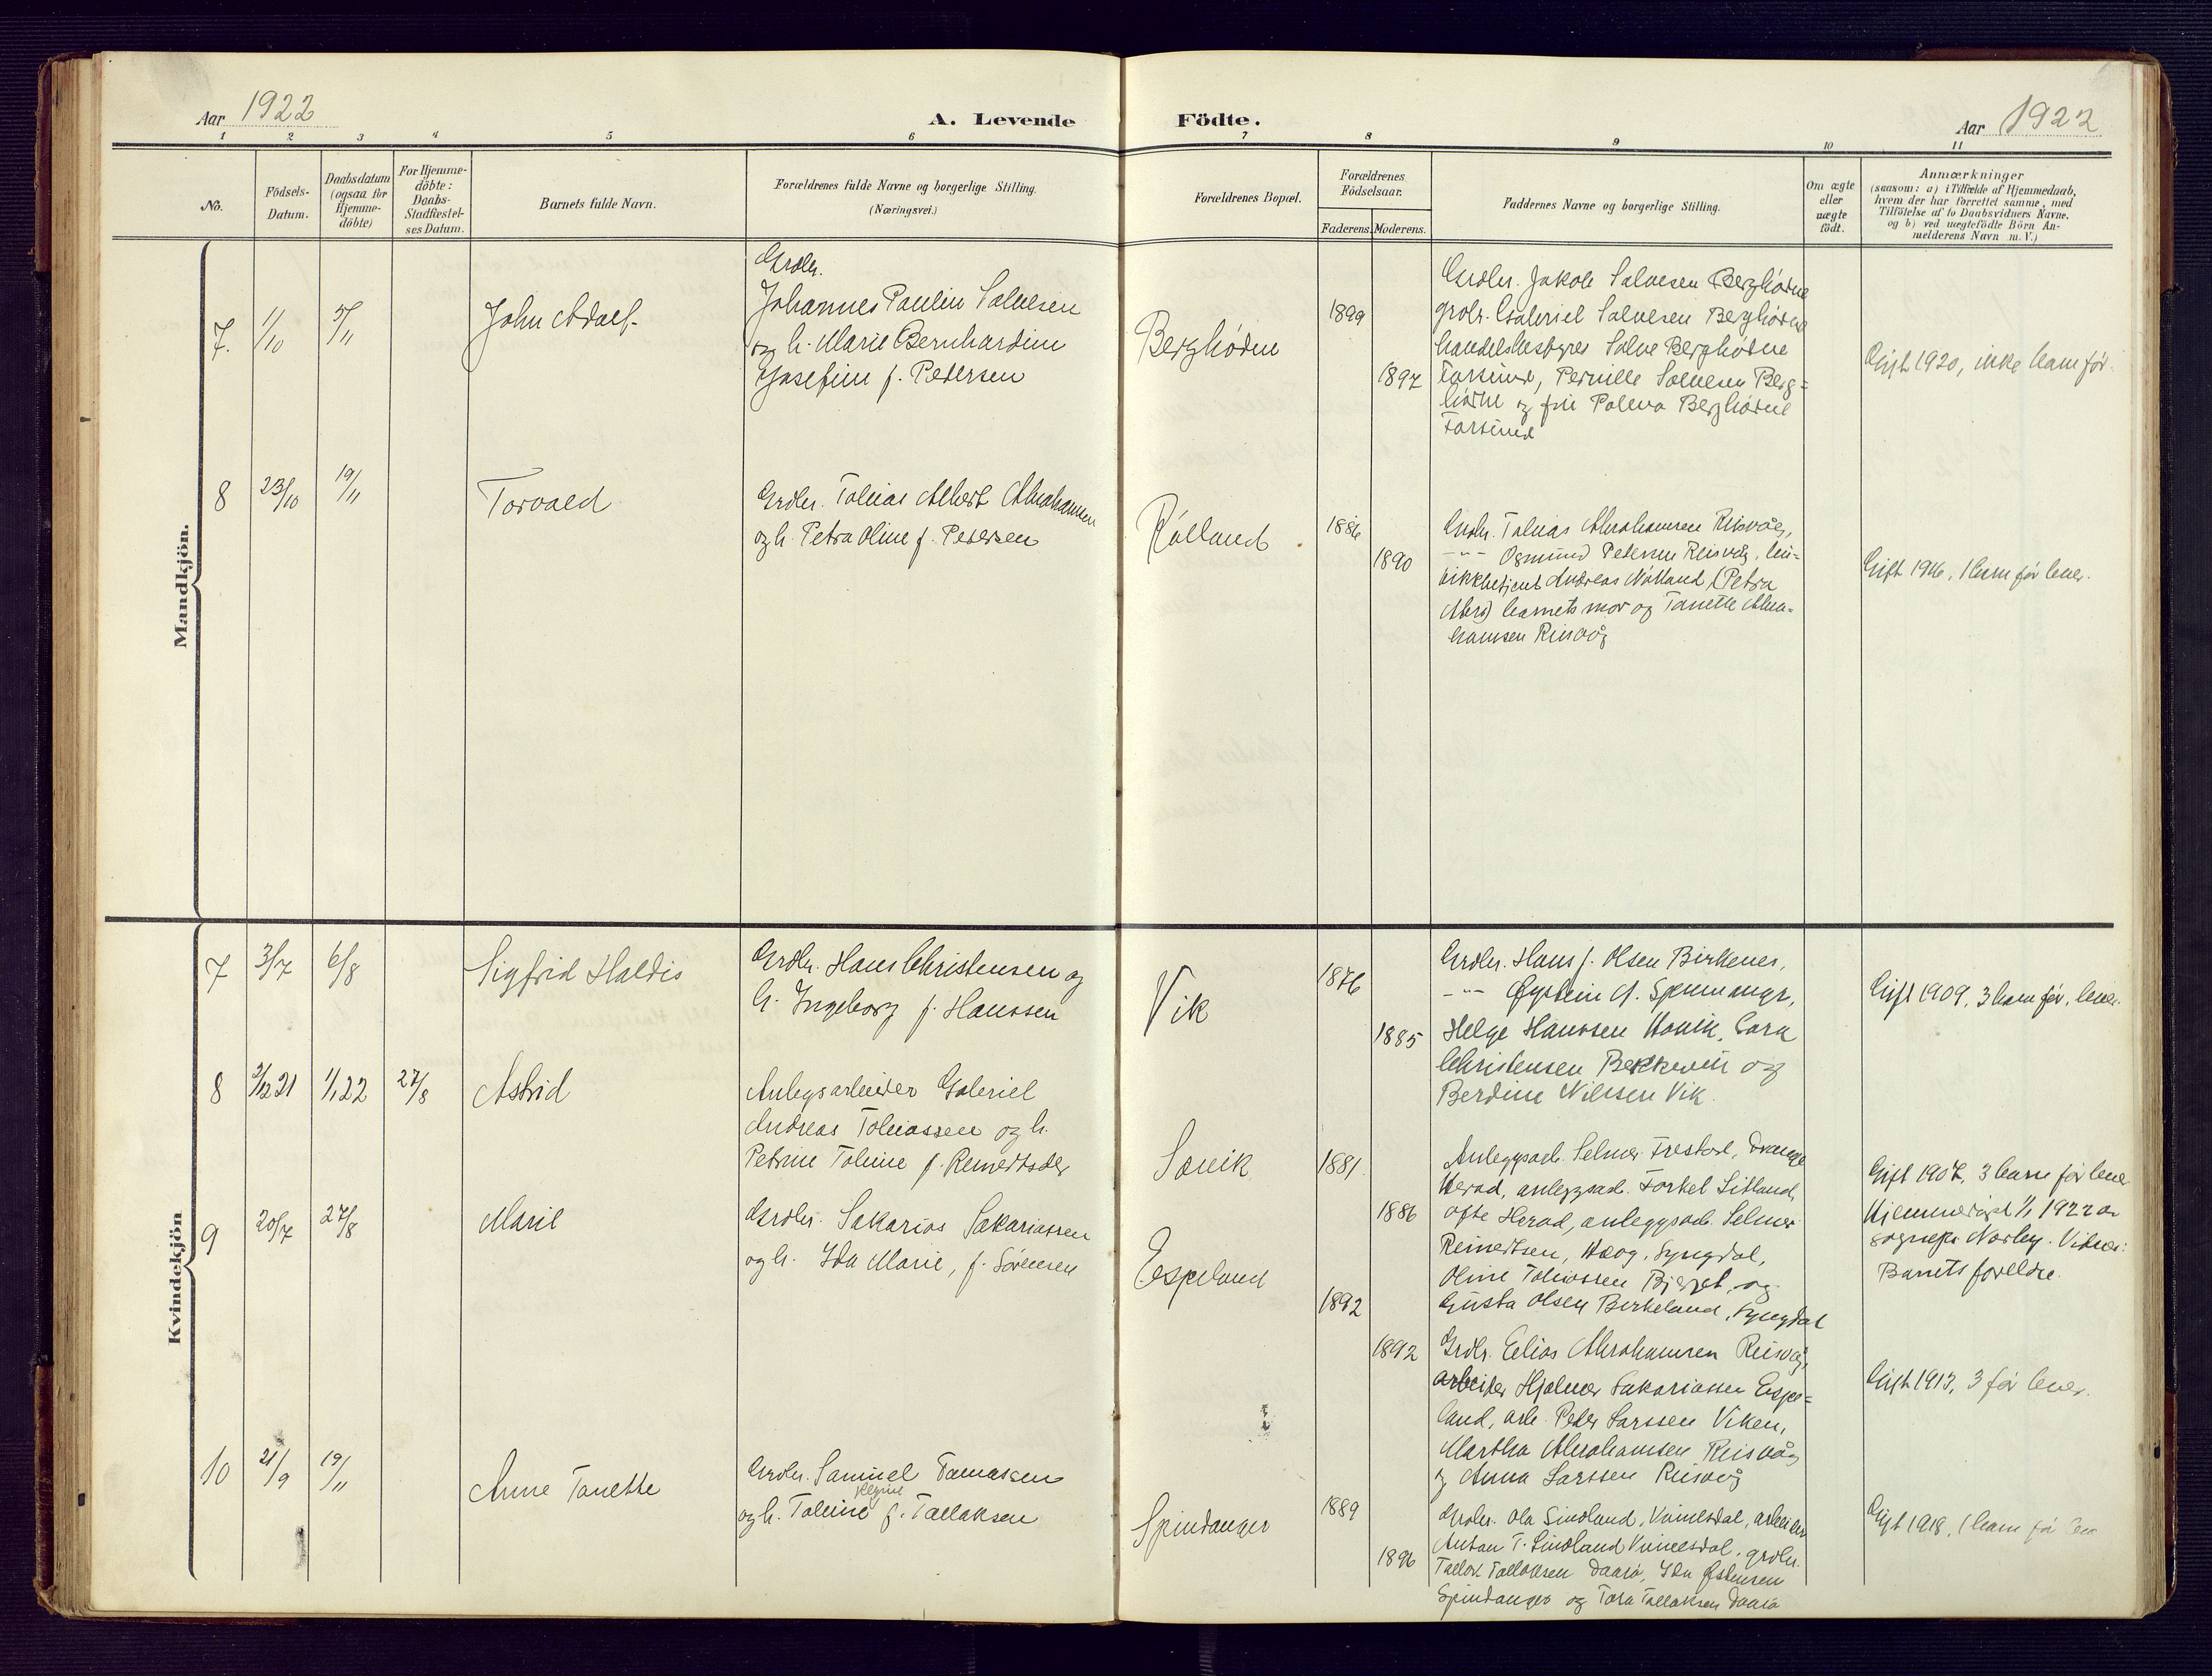 Aar 1922
A. Levende Födte.
Aar 1922
1 2 3 4 5 6 7 8 9 10 11
No.
Födsels-
Datum.
Daabsdatum
(ogsaa for
Hjemme-
döbte)
For Hjemme-
döbte:
Daabs-
Stadfæstel-
ses Datum.
Barnets fulde Navn.
Forældrenes fulde Navne og borgerlige Stilling.
(Næringsvei.)
Forældrenes Bopæl.
Forældrenes
Födselsaar.
Faderens.
Moderens.
Faddernes Navne og borgerlige Stilling.
Om ægte
eller
uægte
födt.
Anmærkninger
(saasom: a) i Tilfælde af Hjemmedaab,
hvem der har forrettet samme, med
Tilföielse af to Daabsvidners Navne.
og b) ved uægtefödte Börn An-
melderens Navn m. V.)
Mandkjön.
7. 1/10 5/11
John Adolf
Grdbr.
Johannes Paulin Salvesen
og h. Marie Bernhardine
Josefine f. Pedersen
Berghødne
1899
1897
Grdbr. Jakob Salvesen Berghødne
grdbr. Gabriel Salvesen Berghødne
handelsbestyrer Salve Berghødne
Farsund, Pernille Salvesen Berg=
hødne og frk Paleva Berghødne
Farsund
Gift 1920, ikke barn før.
8 23/10 19/11
Torvald
Grdbr. Tobias Albert Abrahamsen
og h. Petra Oline f. Pedersen
Rølland
1886
1890
Grdbr. Tobias Abrahamsen Risvåg,
-"- Osmund Petersen Reisvåg,
Andreas Nøtland, (Petra
Abrs) barnets mor og Tanette Abra-
hamsen Risvåg
Gift 1916, 1 barn før lever.
Kvindekjön
7 3/7 6/8
Sigfrid Haldis
Grdbr. Hans Christensen og
h. Ingeborg f. Hanssen
Vik
1876
1885
Grdbr. Hans J. Olsen Birkenes,
-"- Øystein A. Spinnanger,
Helge Hanssen Høvik, Cara
Christensen Bekkevik og
Berdine Nilssen Vik.
Gift 1909, 3 barn før, lever.
8 3/12 21 1/1 22 27/8
Astrid
Anlegsarbeider Gabriel
Andreas Tobiassen og h.
Petrine Tobine f. Reinertsdtr
Sævik
1881
1886
Anleggsarb. Selmer Trestad, Drange
Herad, anleggsarb. Torkel Litland,
Ofte Herad, anleggsarb. Selmer
Reinertsen, Haog, Lyngdal,
Oline Tobiassen Bjerget, og
Gusta Olsen Birkeland, Lyngdal
Gift 1907, 3 barn før lever
Hjemmedøpt 1/1 1922 av
sognepr. Nørby. Vidner:
Barnets foreldre.
9 20/7 27/8
Marie
Grdbr. Sakarias Sakariassen
og h. Ida Marie, f. Sörensen
Espeland
1892
1892
Grdbr. Elias Abrahamsen Risvåg,
arbeider Hjalmer Sakariassen Espe=
land, arb. Peder Larssen Viken,
Martha Abrahamsen Risvåg
og Anna Larssen Risvåg
Gift 1913, 3 før lever.
10 21/9 19/11
Anne Tanette
Grdbr. Samuel Tomassen
og h. Tobine Regine f. Tallaksen
Spindanger
1889
1896
Grdbr. Ola Sindland, Vinnesdal, arbeider
Antan T. Sindland Vinnesdal, grdbr.
Tallak Tallaksen Daasø, Ida Østensen
Spindanger og Tora Tallaksen Daasø
Gift 1918, 1 barn før lever